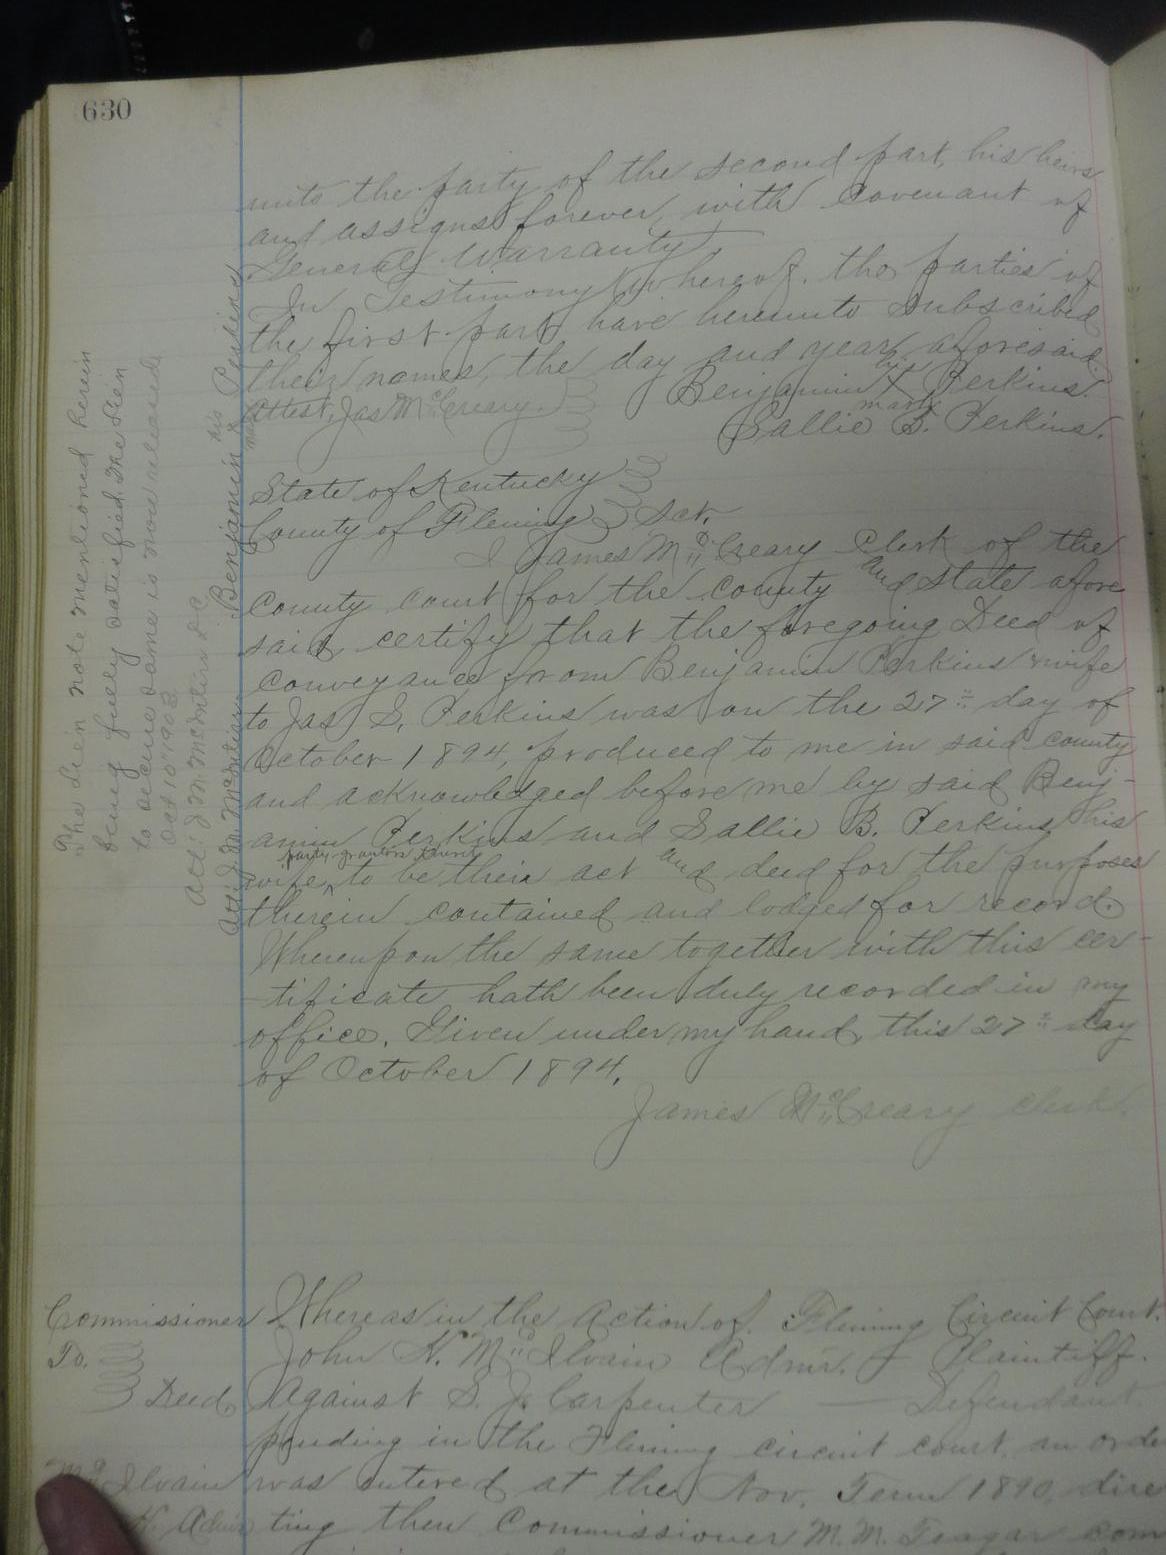 630
unto the party of the second part, his heirs
and assigns forever, with Covenant of
General Warranty.
In Testimony Whereof, the parties of
the first part have hereunto subscribed
their names, the day and year aforesaid.
Attest, Jas McCreary. Benjamin his X mark Perkins.
Sallie B. Perkins.
State of Kentucky
County of Fleming Sct.
I James McCreary Clerk of the
County court for the county and state afore
said, certify that the foregoing Deed of
conveyance from Benjamin Perkins & wife
to Jas S. Perkins was on the 27" day of
October 1894, produced to me in said county
and acknowledged before me by said Benj-
amin Perkins and Sallie B. Perkins, his
wife, party grantors thereto to be their act and deed for the purposes
therein contained and lodged for record.
Whereupon the same together with this cer-
tificate hath been duly recorded in my
office. Given under my hand, this 27" day
of October 1894.
James McCreary Clerk.
The lien note mentioned herein
being fully satisfied the lien
to secure same is now released
Oct 10" 1903
Att: J. M. McIntire D.C.
Benjamin his X Perkins
Att: J. M. McIntire
Commissioner
To. Deed
McIlvain
H. Admr
Whereas in the Action of Fleming Circuit Court.
John H. McIlvain Admr. Plaintiff.
Against S. J. Carpenter — Defendant.
pending in the Fleming circuit court, an order
was entered at the Nov. Term 1890, direc
ting then Commissioner M. M. Teagar com